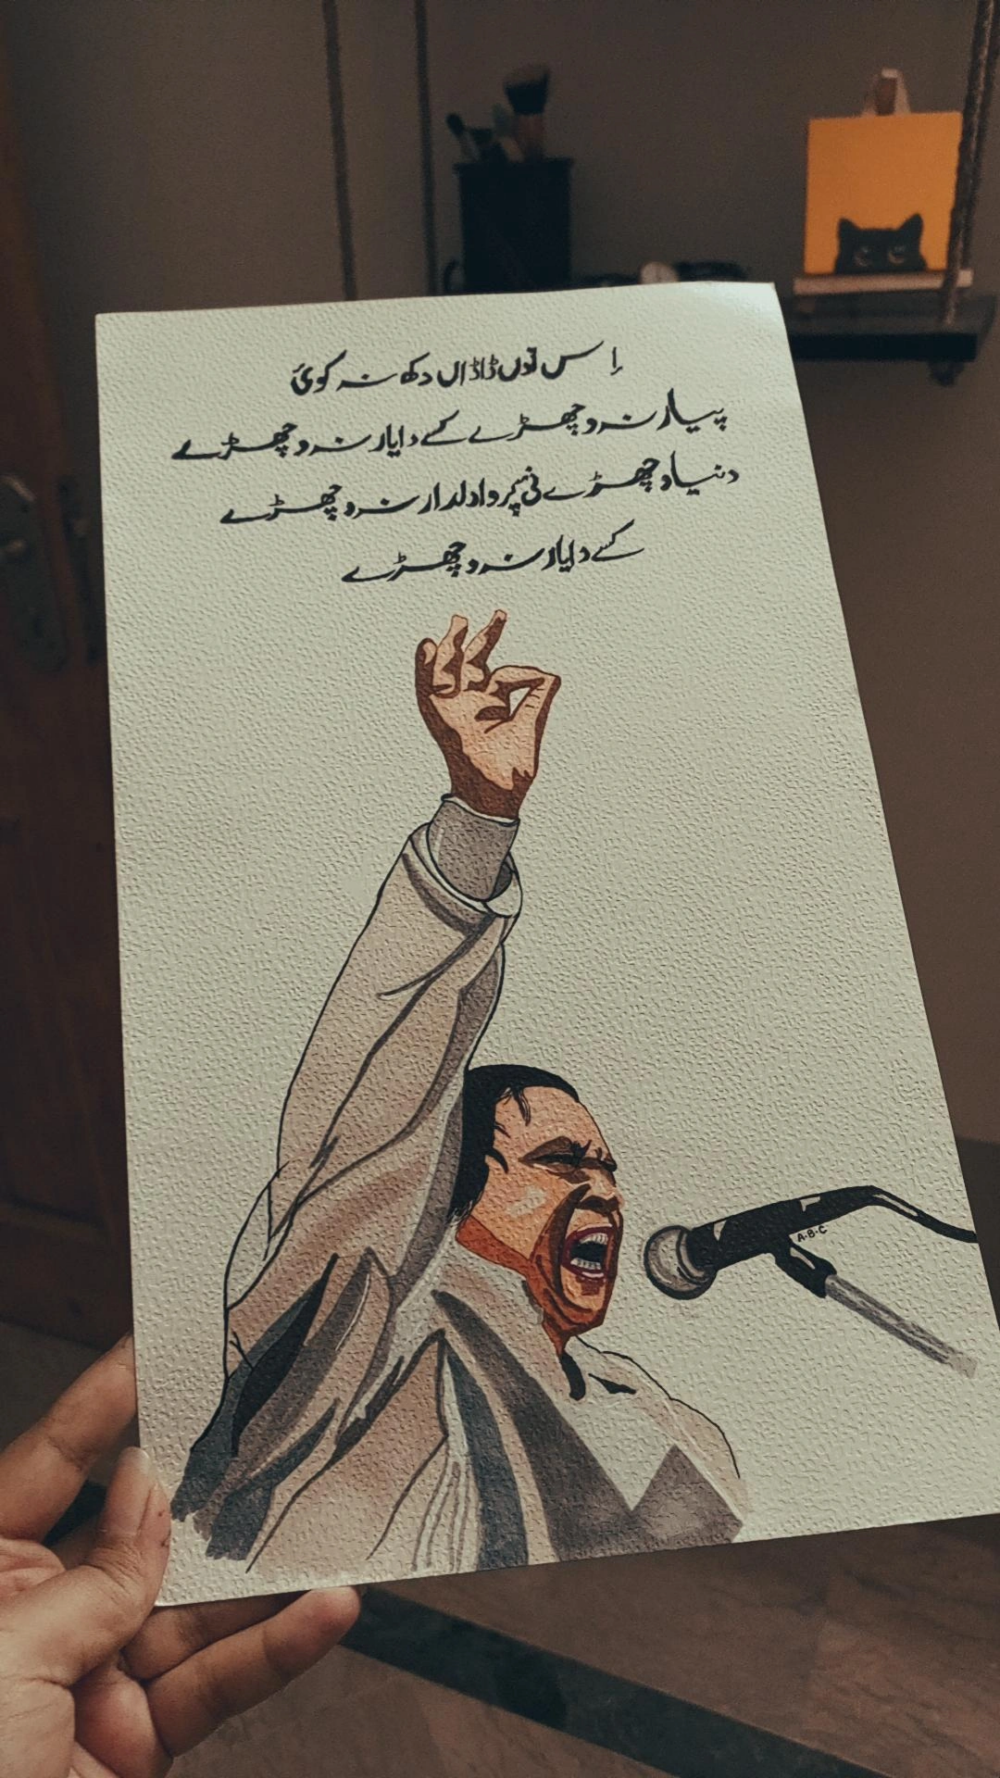 اِس توں ڈاڈاں دکھ نہ کوئ
پیار نہ وچھڑے کسے دا یار نہ وچھڑے
دنیا وچھڑے نی پر وا دلدار نہ وچھڑے
کسے دا یار نہ وچھڑے
A·B·C